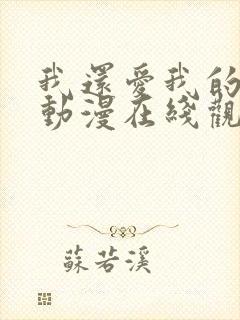 我還愛我的
動漫在綫觀
蘇若溪